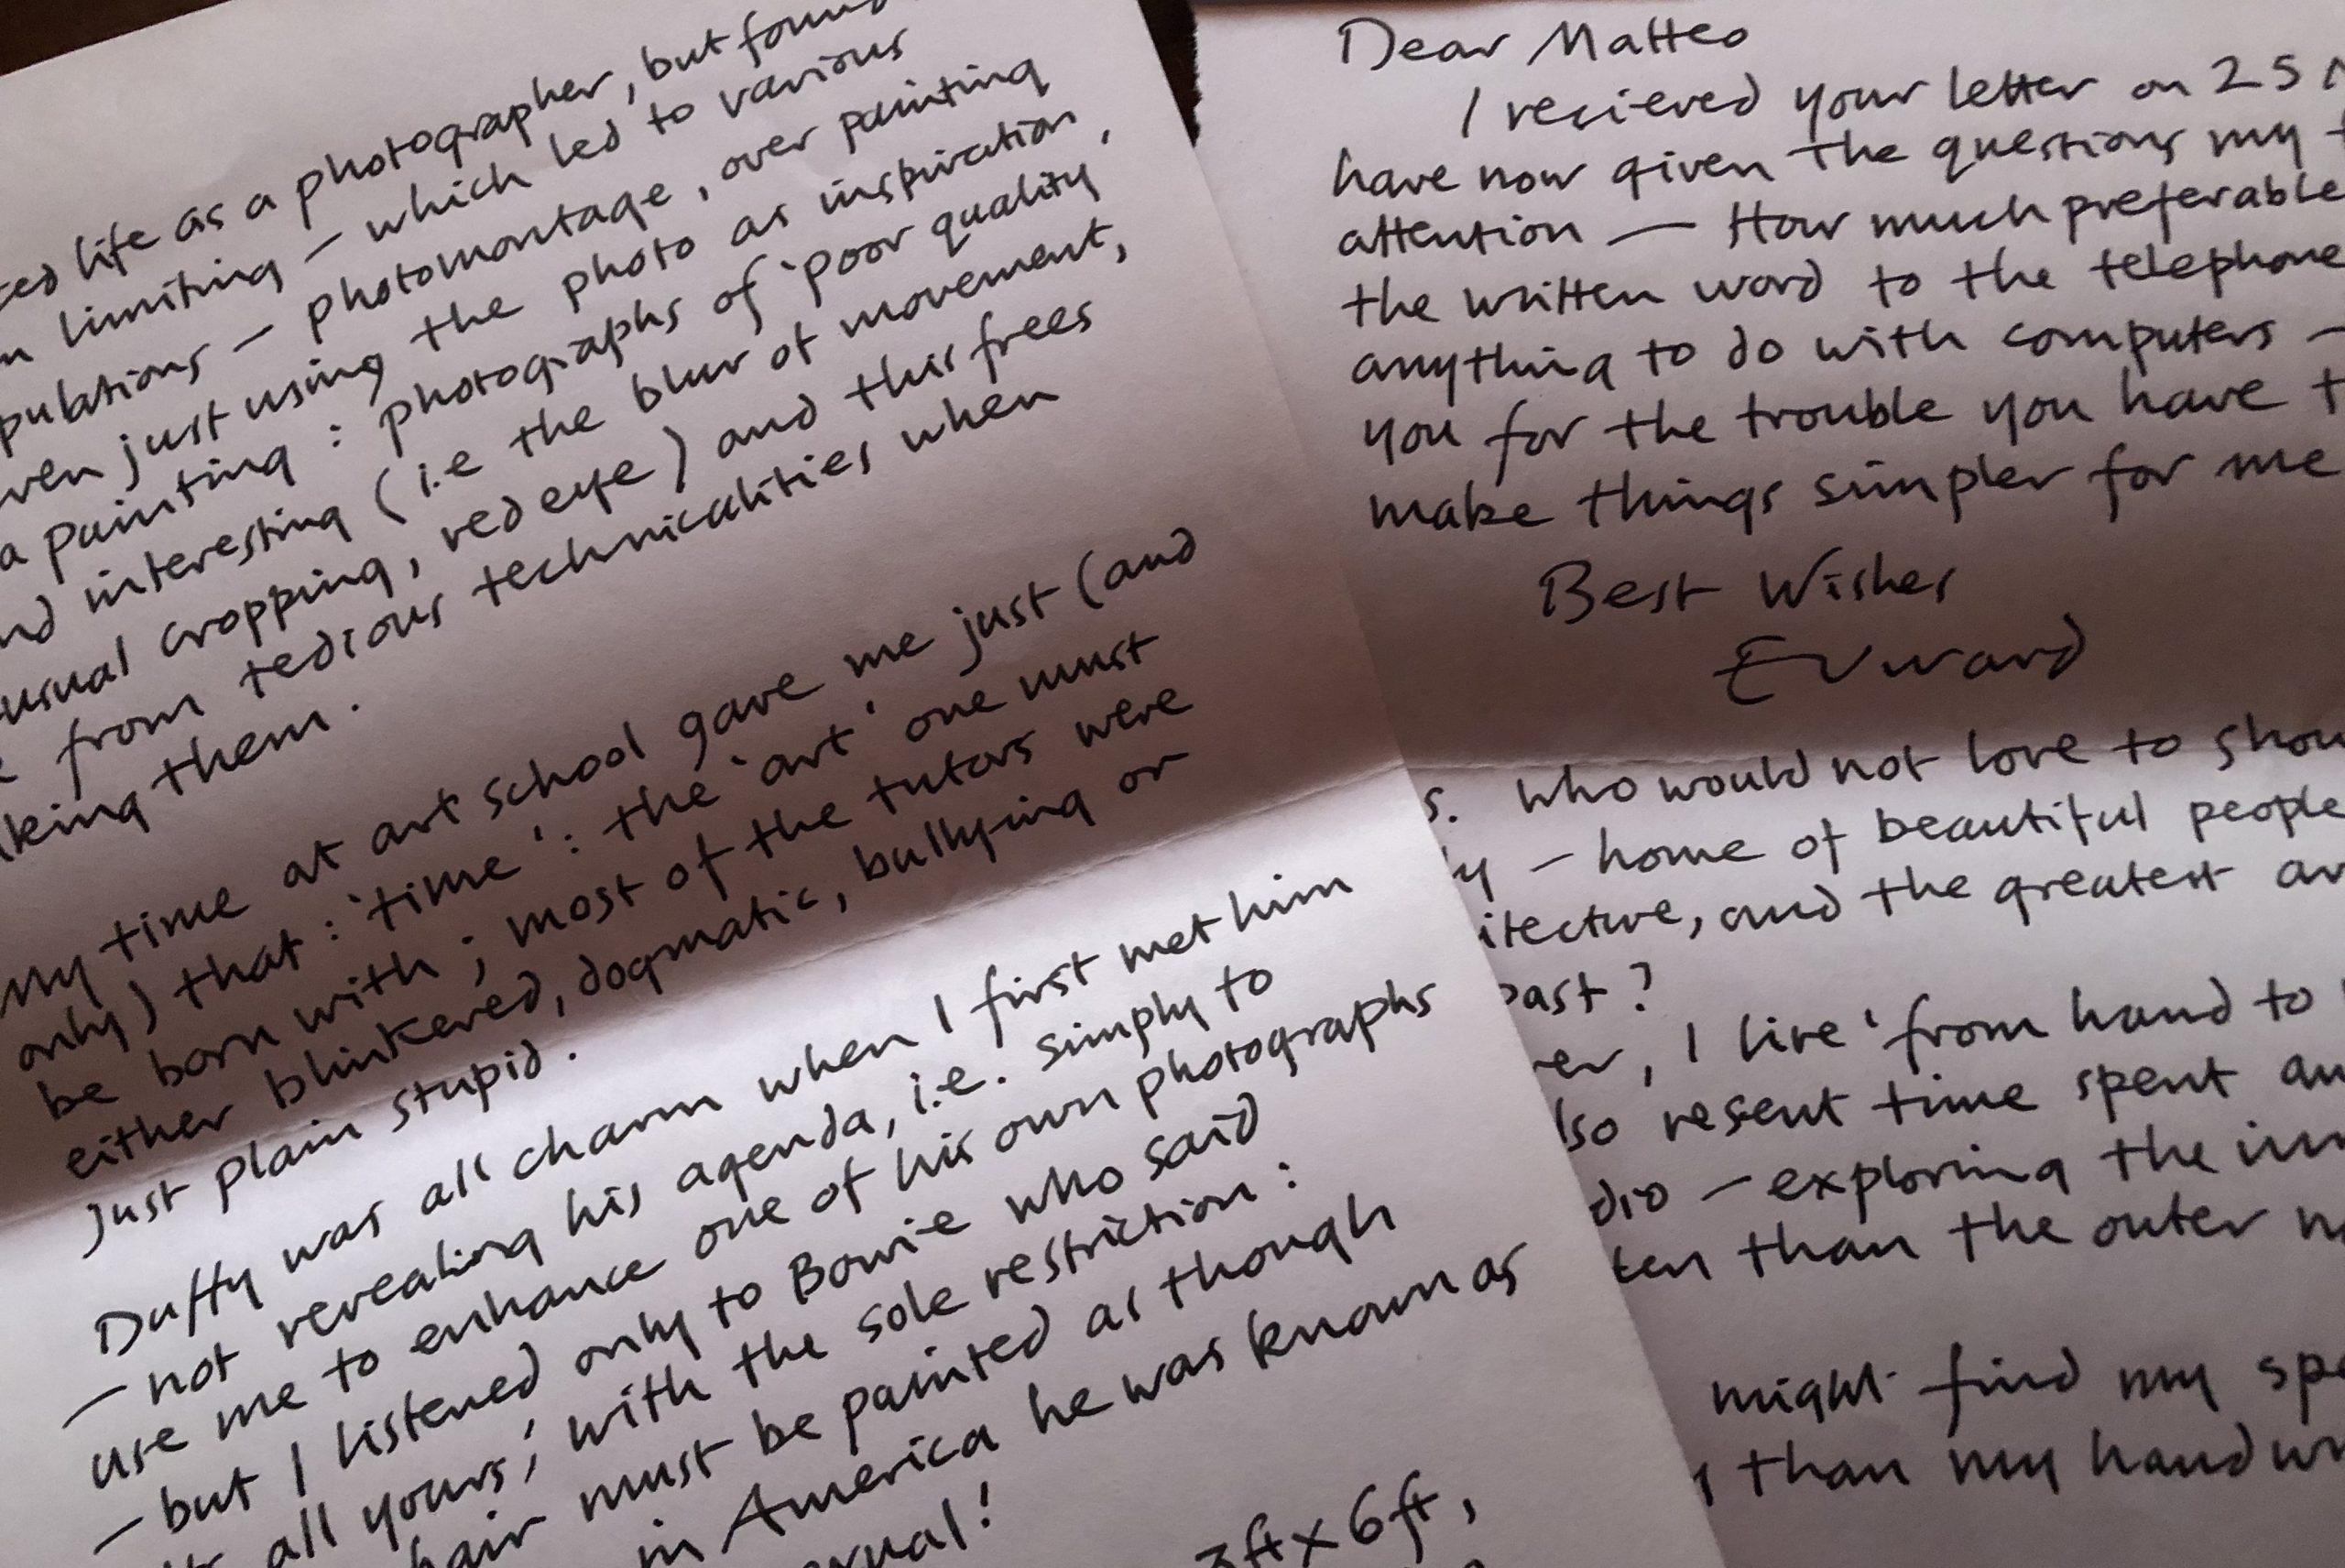 life as a photographer, but found
limiting – which led to various
– photomontage, over painting
just using the photo as inspiration,
a painting : photographs of 'poor quality,
interesting (i.e the blur of movement,
cropping, red eye) and this frees
from tedious technicalities when
them.
My time at art school gave me just (and
only) that : 'time' : the 'art' one must
be born with ; most of the tutors were
either blinkered, dogmatic, bullying or
just plain stupid.
Duffy was all charm when I first met him
– not revealing his agenda, i.e. simply to
use me to enhance one of his own photographs
– but I listened only to Bowie who said
all yours; with the sole restriction :
hair must be painted as though
in America he was known as
3ft x 6ft,
Dear Matteo
I recieved your letter on 25
have now given the questions my
attention — How much preferable
the written word to the telephone
anything to do with computers –
you for the trouble you have
make things simpler for me
Best Wishes
Edward
s. Who would not love to
– home of beautiful people
and the greatest
past?
, I live 'from hand to
resent time spent
– exploring the
than the outer
might find my
than my